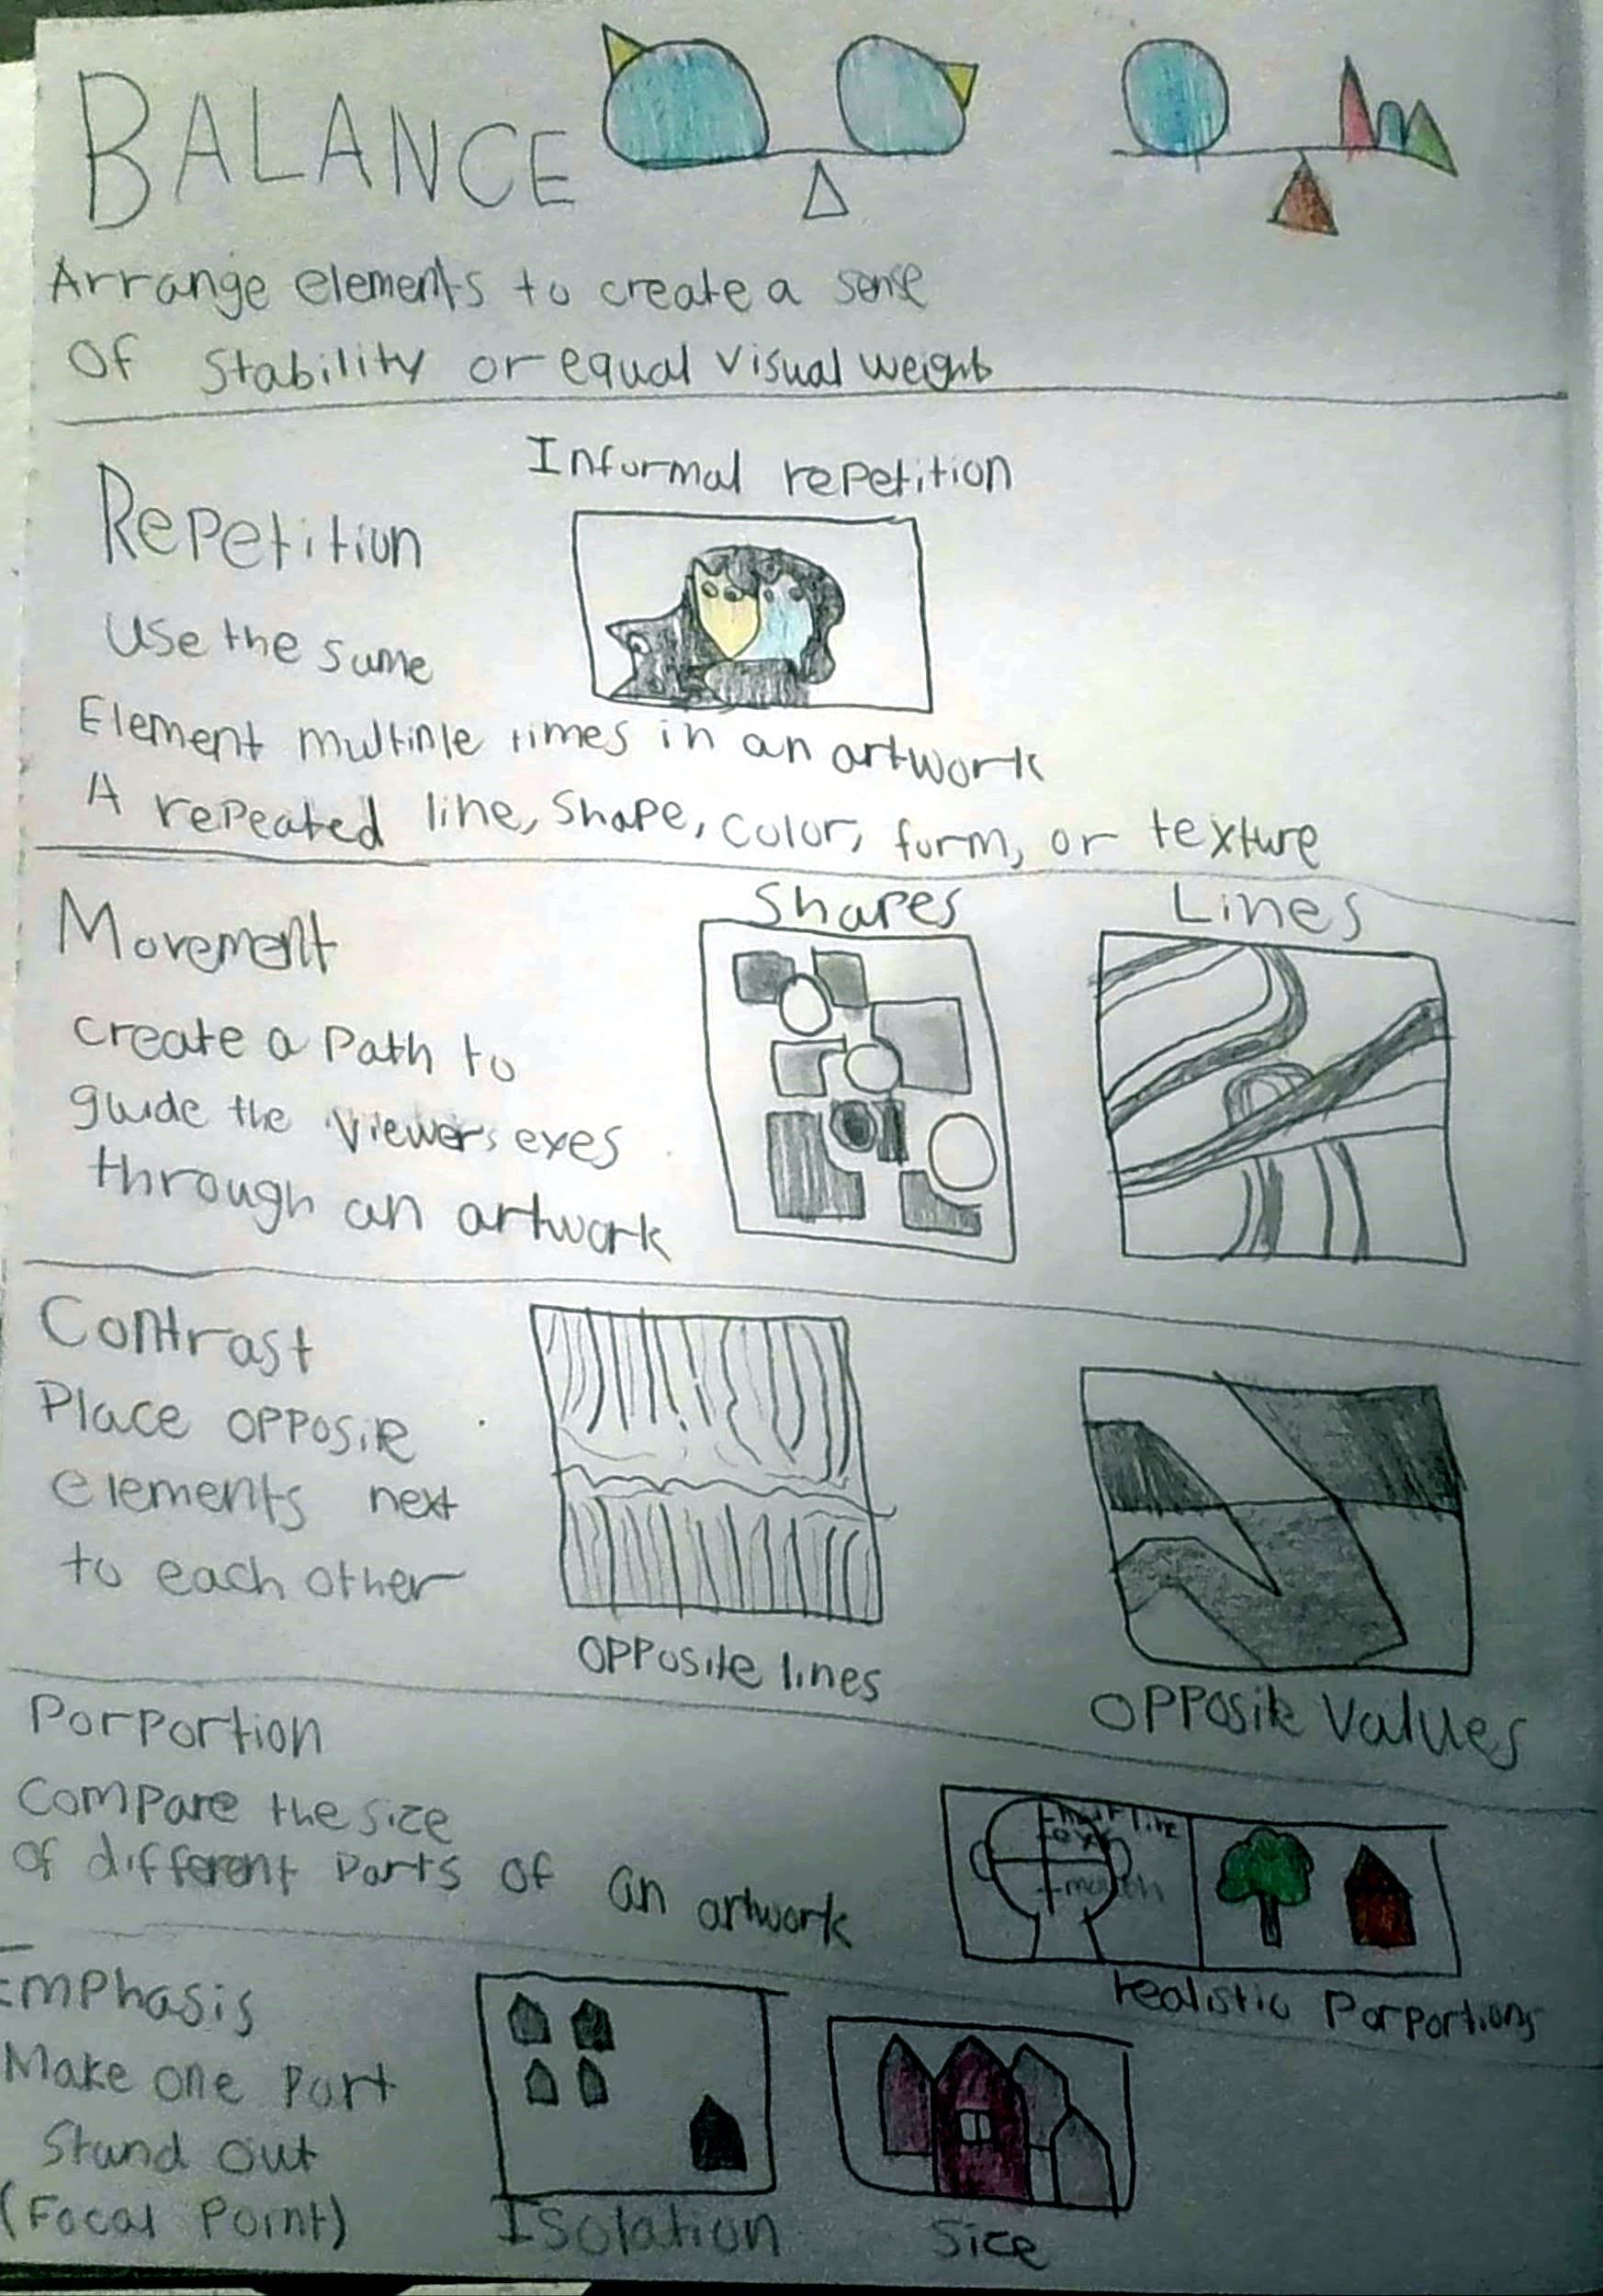 BALANCE
Arrange elements to create a sense
Of Stability or equal visual weight
Informal repetition
Repetition
Use the same
Element multiple times in an artwork
A repeated line, Shape, color, form, or texture
Movement
Shapes
Lines
create a Path to
guide the viewers eyes
through an artwork
Contrast
Place opposite
elements next
to each other
opposite lines
opposite values
Porportion
Compare the size
of different parts of an artwork
mouth
realistic Porportions
Emphasis
Make one part
Stand out
(Focal Point)
Isolation
Size